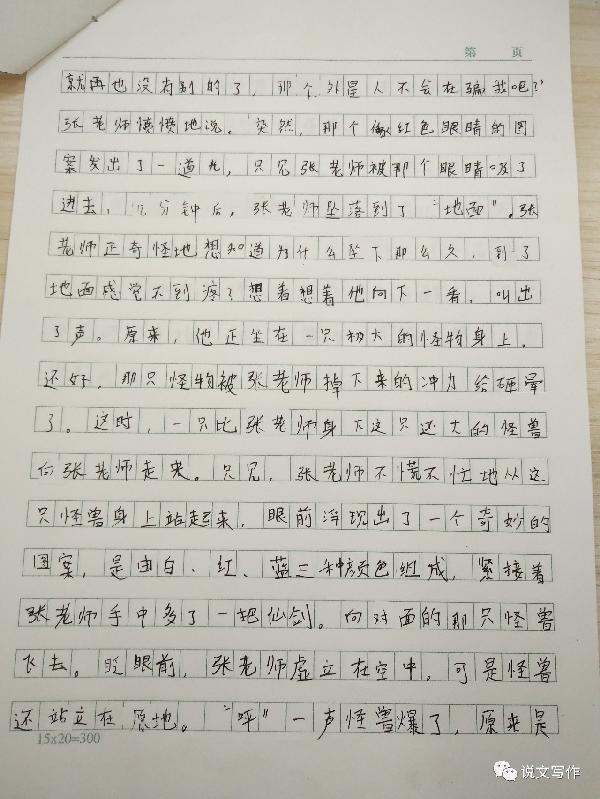 第 页
就再也没有别的了，那个外星人不会在骗我吧？”
张老师愤愤地说。突然，那个像红色眼睛的图
案发出了一道光，只见张老师被那个眼睛吸了
进去，几分钟后，张老师坠落到了“地面”。张
老师正奇怪地想知道为什么坠下那么久，到了
地面感觉不到疼？想着想着他向下一看，叫出
了声。原来，他正坐在一只初大的怪物身上，
还好，那只怪物被张老师掉下来的冲力给砸晕
了。这时，一只比张老师身下这只还大的怪兽
向张老师走来。只见，张老师不慌不忙地从这
只怪兽身上站起来，眼前浮现出了一个奇妙的
图案，是由白、红、蓝三种颜色组成，紧接着
张老师手中多了一把仙剑。向对面的那只怪兽
飞去。眨眼前，张老师虚立在空中，可是怪兽
还站立在原地。“呼”一声怪兽爆了，原来是
15×20=300
说文写作